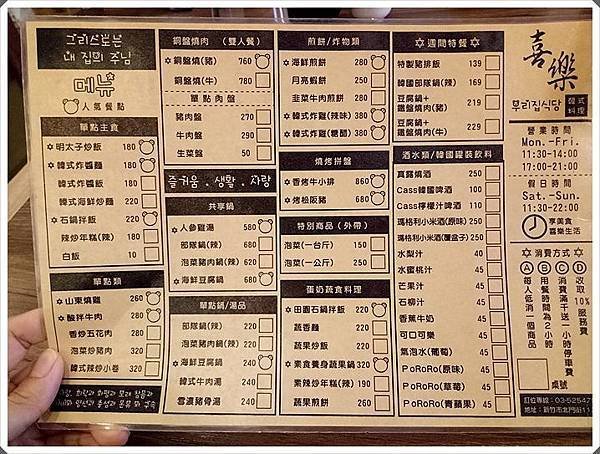 그리스도는
내 집의 주님
메뉴
人氣餐點
單點主食
✡明太子炒飯 180
✡韓式炸醬麵 180
韓式炸醬飯 180
韓式海鮮炒麵 210
✡石鍋拌飯 220
辣炒年糕(辣) 150
白飯 10
單點類
✡山東燒雞 260
✡酸拌牛肉 280
香炒五花肉 280
泡菜炒豬肉 320
韓式辣炒小卷 320
銅盤燒肉 (雙人餐)
✡銅盤燒(豬) 760
銅盤燒(牛) 780
單點肉盤
豬肉盤 270
牛肉盤 290
生菜盤 50
즐거움 . 생활 . 자랑
共享鍋
✡人參雞湯 580
部隊鍋(辣) 580
泡菜豬肉鍋(辣) 620
✡海鮮豆腐鍋 680
單點鍋/湯品
部隊鍋(辣) 220
泡菜豬肉鍋(辣) 220
✡海鮮豆腐鍋 320
韓式牛肉湯 280
雪濃豬骨湯 280
煎餅/炸物類
✡海鮮煎餅 280
月亮蝦餅 250
韭菜牛肉煎餅 280
✡韓式炸雞(辣味) 380
✡韓式炸雞(糖醋) 380
燒烤拼盤
✡香烤牛小排 860
✡烤松阪豬 680
特別商品 (外帶)
泡菜(一台斤) 150
泡菜(一公斤) 250
蛋奶蔬食料理
✡田園石鍋拌飯 220
蔬香麵 220
蔬果炒飯 180
✡素食養身蔬果鍋 320
素辣炒年糕(辣) 190
蔬果煎餅 260
✡週間特餐✡
特製豬排飯 139
韓國部隊鍋(辣) 169
豆腐鍋+
鐵盤燒肉(豬) 219
豆腐鍋+
鐵盤燒肉(牛) 229
酒水類/韓國罐裝飲料
真露燒酒 250
Cass韓國啤酒 150
Cass檸檬汁啤酒 170
瑪格利小米酒(原味) 350
瑪格利小米酒(覆盆子) 250
水梨汁 40
水蜜桃汁 40
芒果汁 40
石柳汁 40
香蕉牛奶 50
可口可樂 40
氣泡水(葡萄) 45
PoRoRo(原味) 45
PoRoRo(草莓) 45
PoRoRo(青蘋果) 45
喜樂
부리집식당
韓式
料理
營業時間
Mon.-Fri.
11:30-14:00
17:00-21:00
假日時間
Sat.-Sun.
11:30-22:00
享美食
喜樂生活
✡消費方式✡
A 每人低消一個商品
B 用餐時間為2小時
C 消費滿千送一小時停車費
D 收取10%服務費
桌號
訂位專線:03-52547
地址:新竹市北門街11